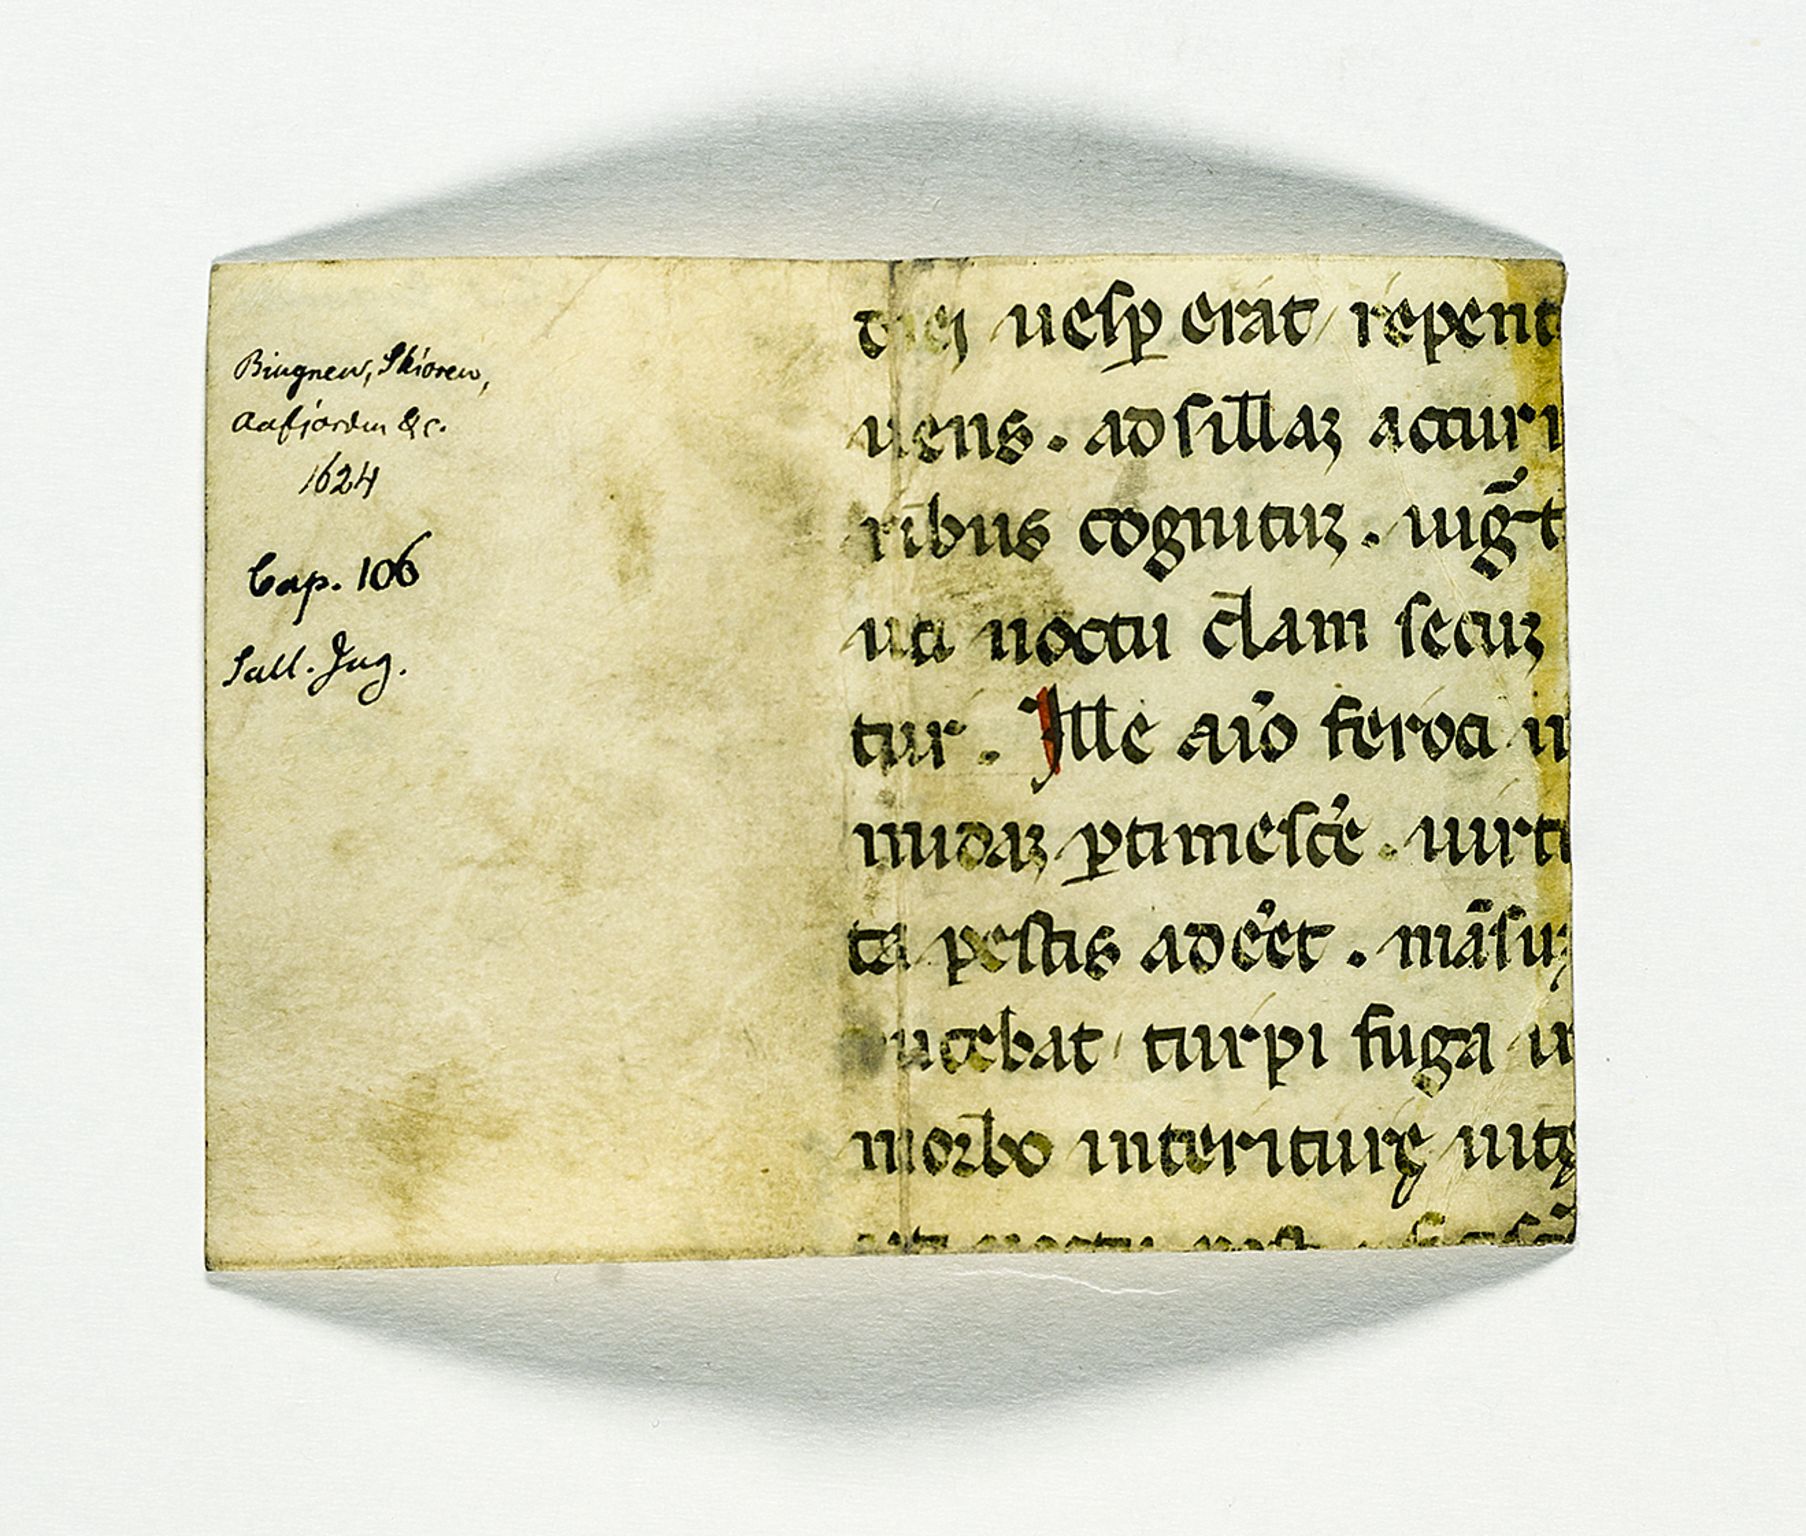 Biugnen, Skioren,
Aafjorden &c.
1624
Cap. 106
Sall. Jug.
diei uesꝑ erat repent
uens. ad sillaꝫ accurr
ribus cognituꝫ. iug̃t
uti noctu cla̅m secuꝫ
tur. Ille aio̅ feroci
midaꝫ ꝑtimesce̓. uirtu
ta pestis ade̓et. ma̅suꝝ
ucebat turpi fuga
morbo interiturę uitę